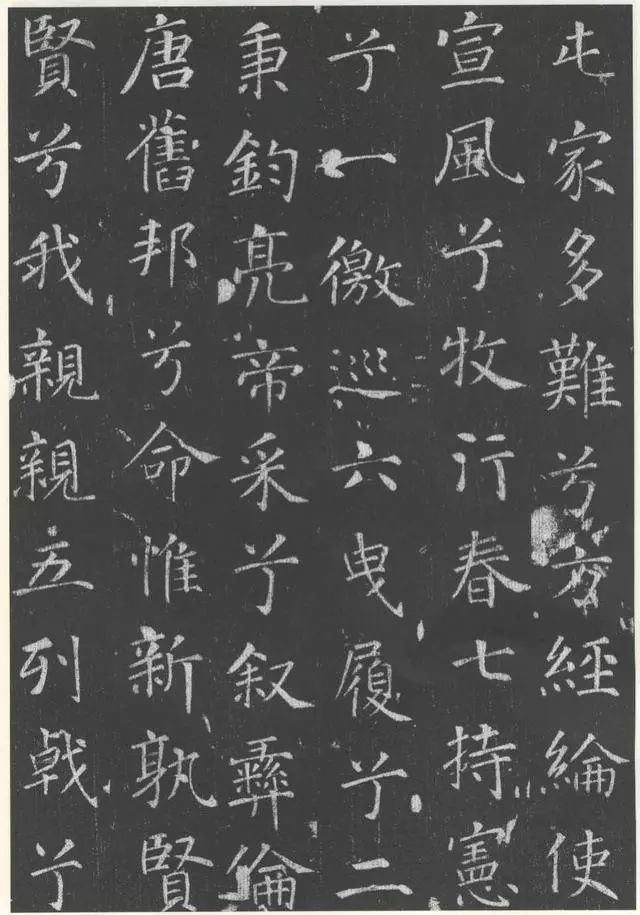 屯家多難兮方經綸使
宣風兮牧行春七持憲
兮一徼巡六曳履兮二
秉鈞亮帝采兮叙彝倫
唐舊邦兮命惟新孰賢
賢兮我親親五列戟兮